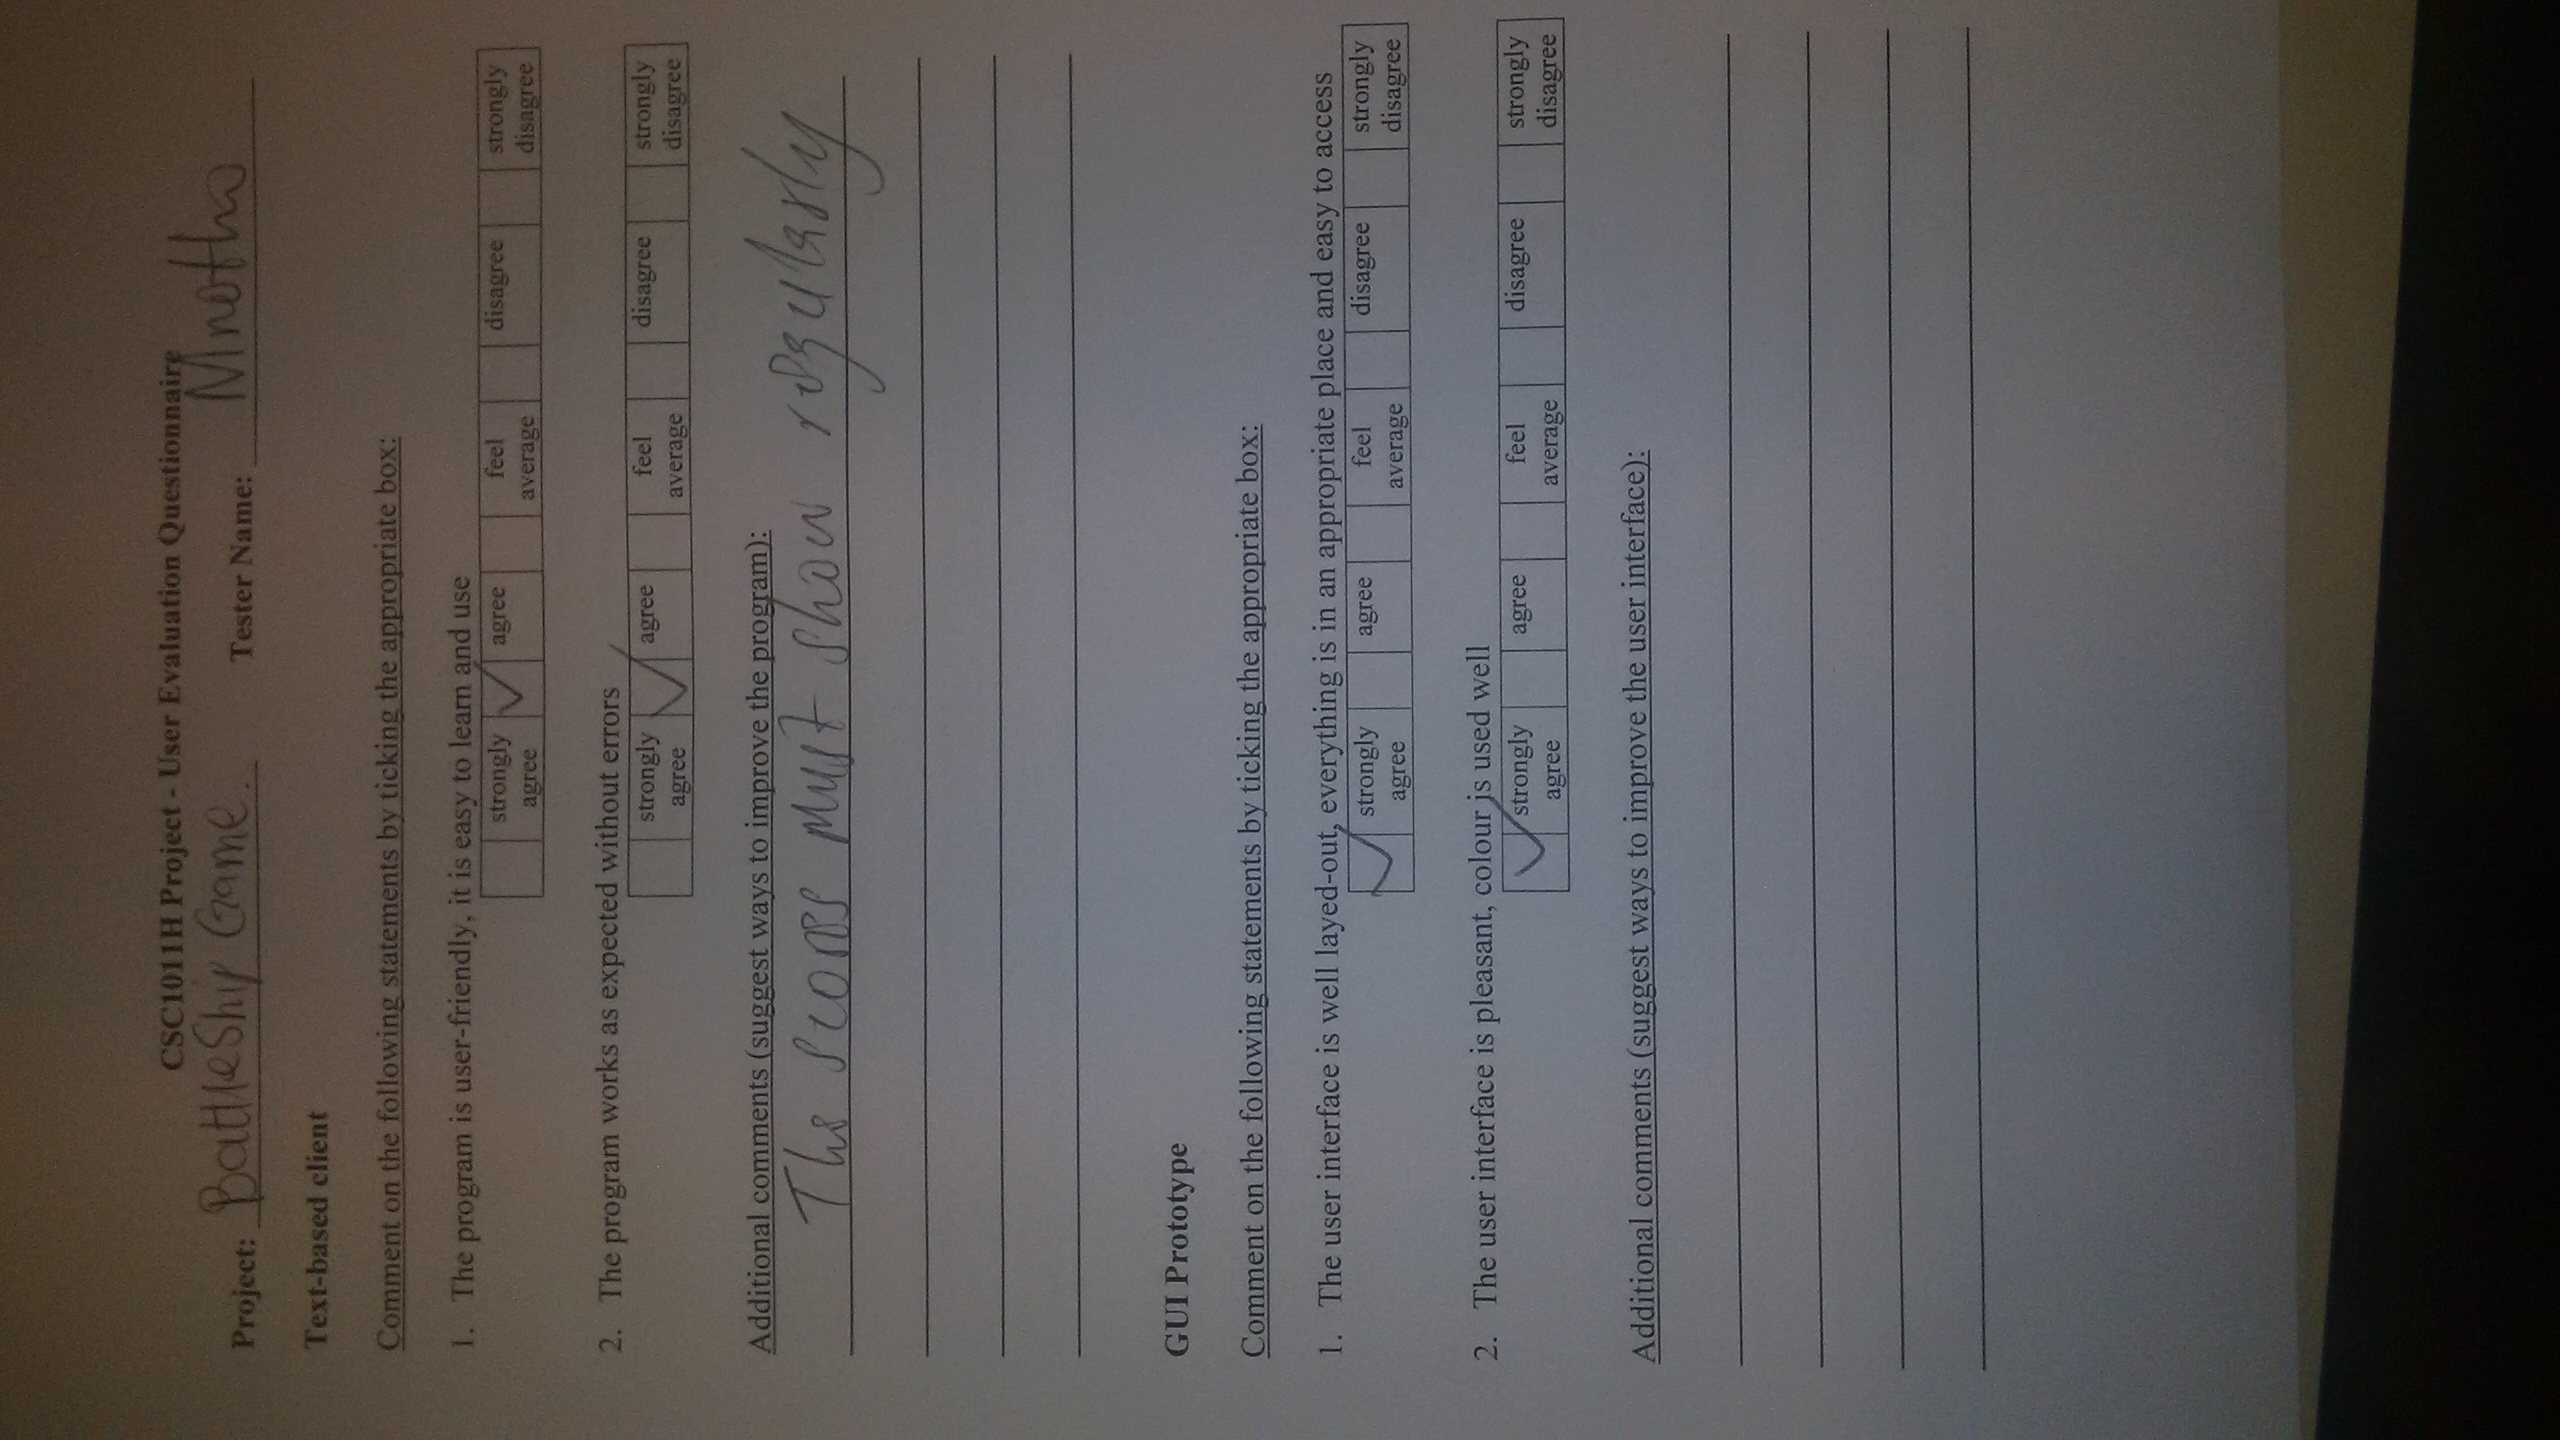 CSC1011H Project - User Evaluation Questionnaire
Project: BattleShip Game. Tester Name: Mnotho
Text-based client
Comment on the following statements by ticking the appropriate box:
1. The program is user-friendly, it is easy to learn and use
strongly agree ✓ agree feel average disagree strongly disagree
2. The program works as expected without errors
strongly agree ✓ agree feel average disagree strongly disagree
Additional comments (suggest ways to improve the program):
The scores must show regularly
GUI Prototype
Comment on the following statements by ticking the appropriate box:
1. The user interface is well layed-out, everything is in an appropriate place and easy to access
✓ strongly agree agree feel average disagree strongly disagree
2. The user interface is pleasant, colour is used well
✓ strongly agree agree feel average disagree strongly disagree
Additional comments (suggest ways to improve the user interface):